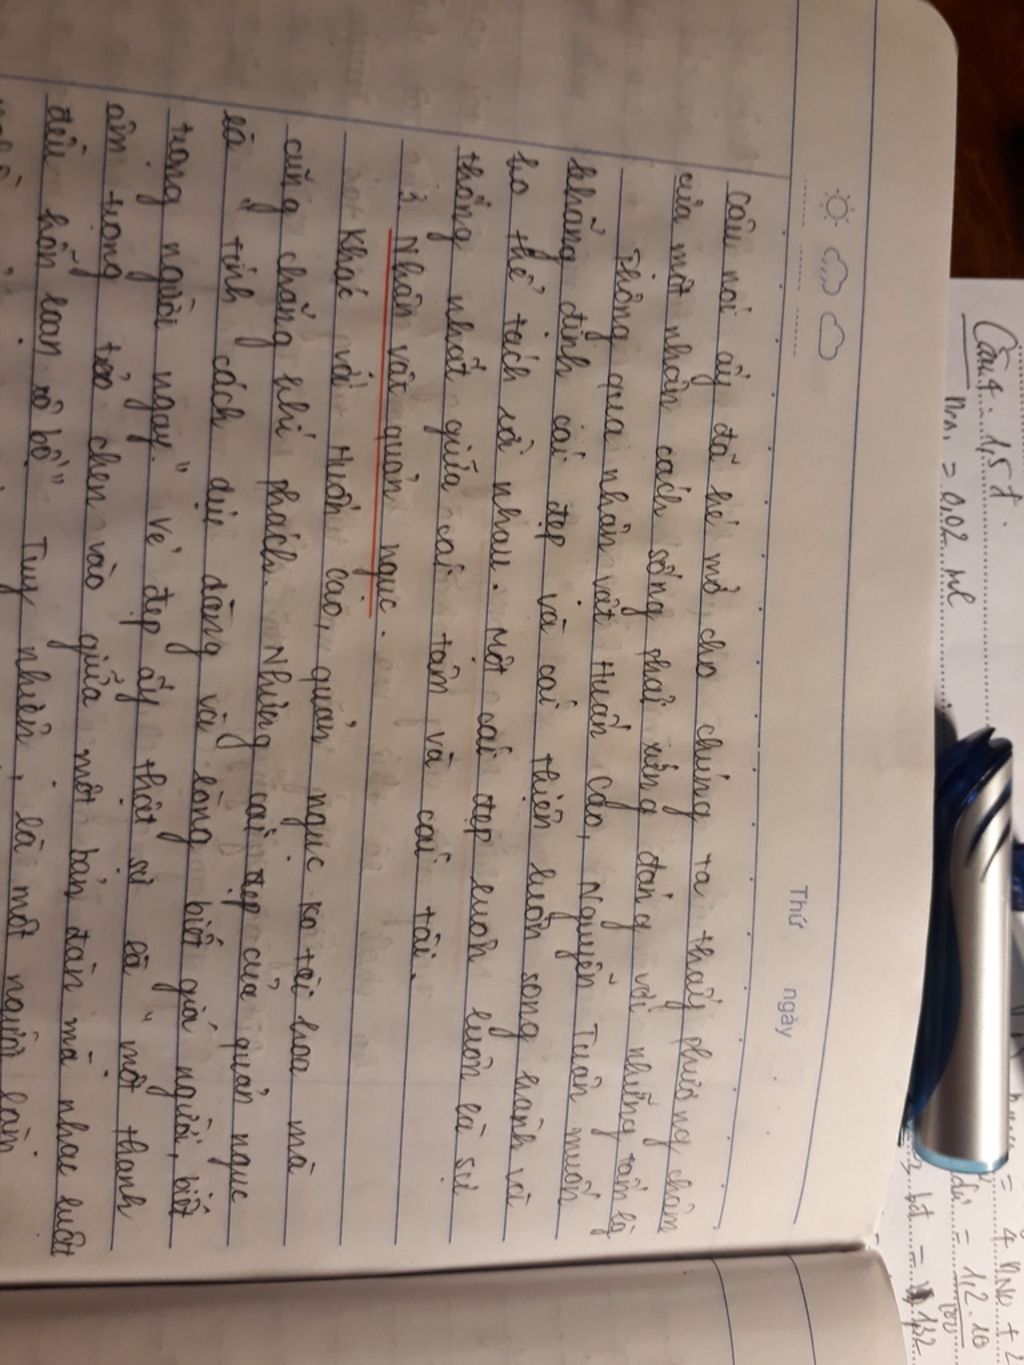 Thứ ngày
câu nói ấy đã hé mở cho chúng ta thấy phương châm
của một nhân cách sống phải xứng đáng với những tấm lg
Thông qua nhân vật Huấn Cao, Nguyễn Tuân muốn
khẳng định cái đẹp và cái thiện luôn song hành và
ko thể tách rời nhau. Một cái đẹp luôn luôn là sự
thống nhất giữa cái tâm và cái tài.
3. Nhân vật quản ngục.
Khác với Huấn Cao, quản ngục ko tài hoa mà
cũng chẳng khí phách. Những cái đẹp của quản ngục
là " tính cách dịu dàng và lòng biết giá người, biết
trọng người ngay." vẻ đẹp ấy thật sự là " một thanh
âm trong trẻo chen vào giữa một bản đàn mà nhạc luật
đều hỗn loạn xô bồ" Tuy nhiên, là một người làm
Câu 4. 1,5đ.
= 0,02 ml
= 4 nNO + 2
= 1,2.10